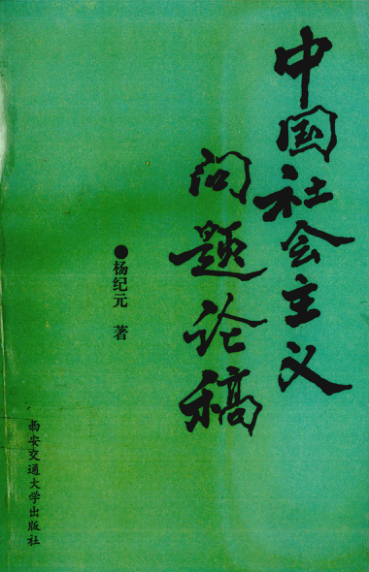 中国社会主义
问题论稿
●杨纪元 著
西安交通大学出版社